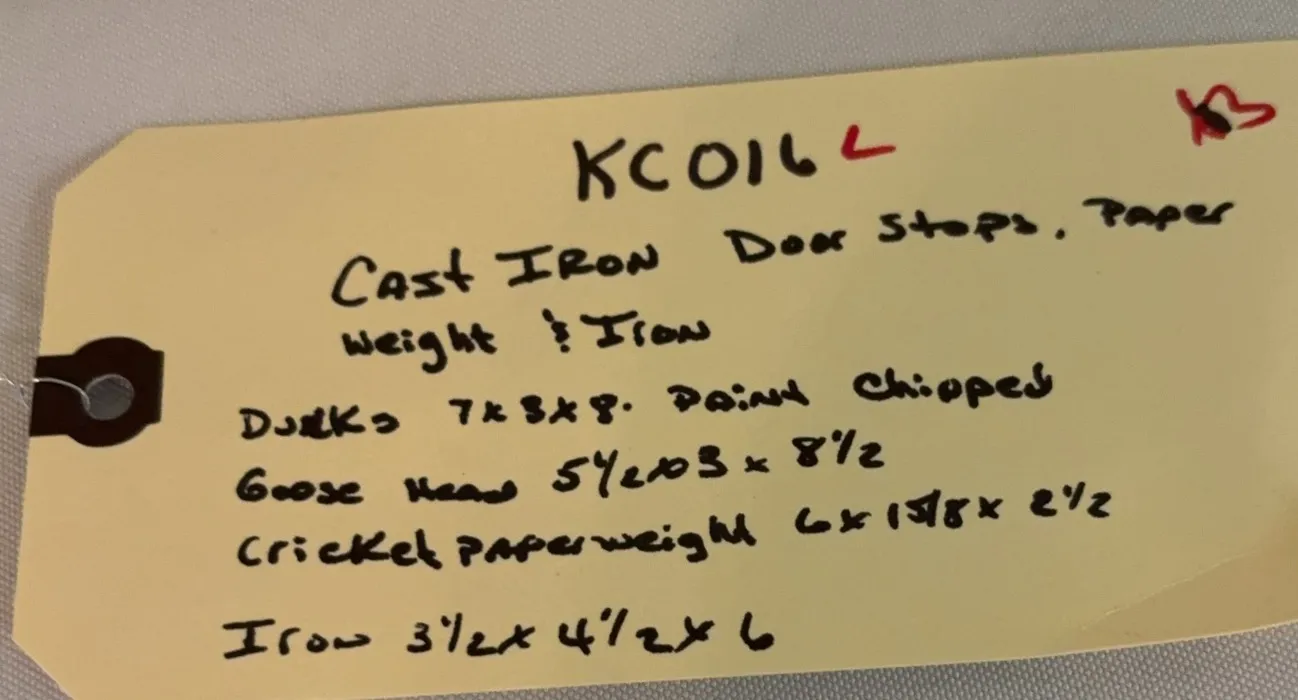 KC016 L
Cast IRON Door Stops, Paper
Weight & Iron
Ducks 7x3x8. Paint Chipped
Goose Head 5 1/2 x 3 x 8 1/2
Cricket paperweight 6 x 1 5/8 x 2 1/2
Iron 3 1/2 x 4 1/2 x 6